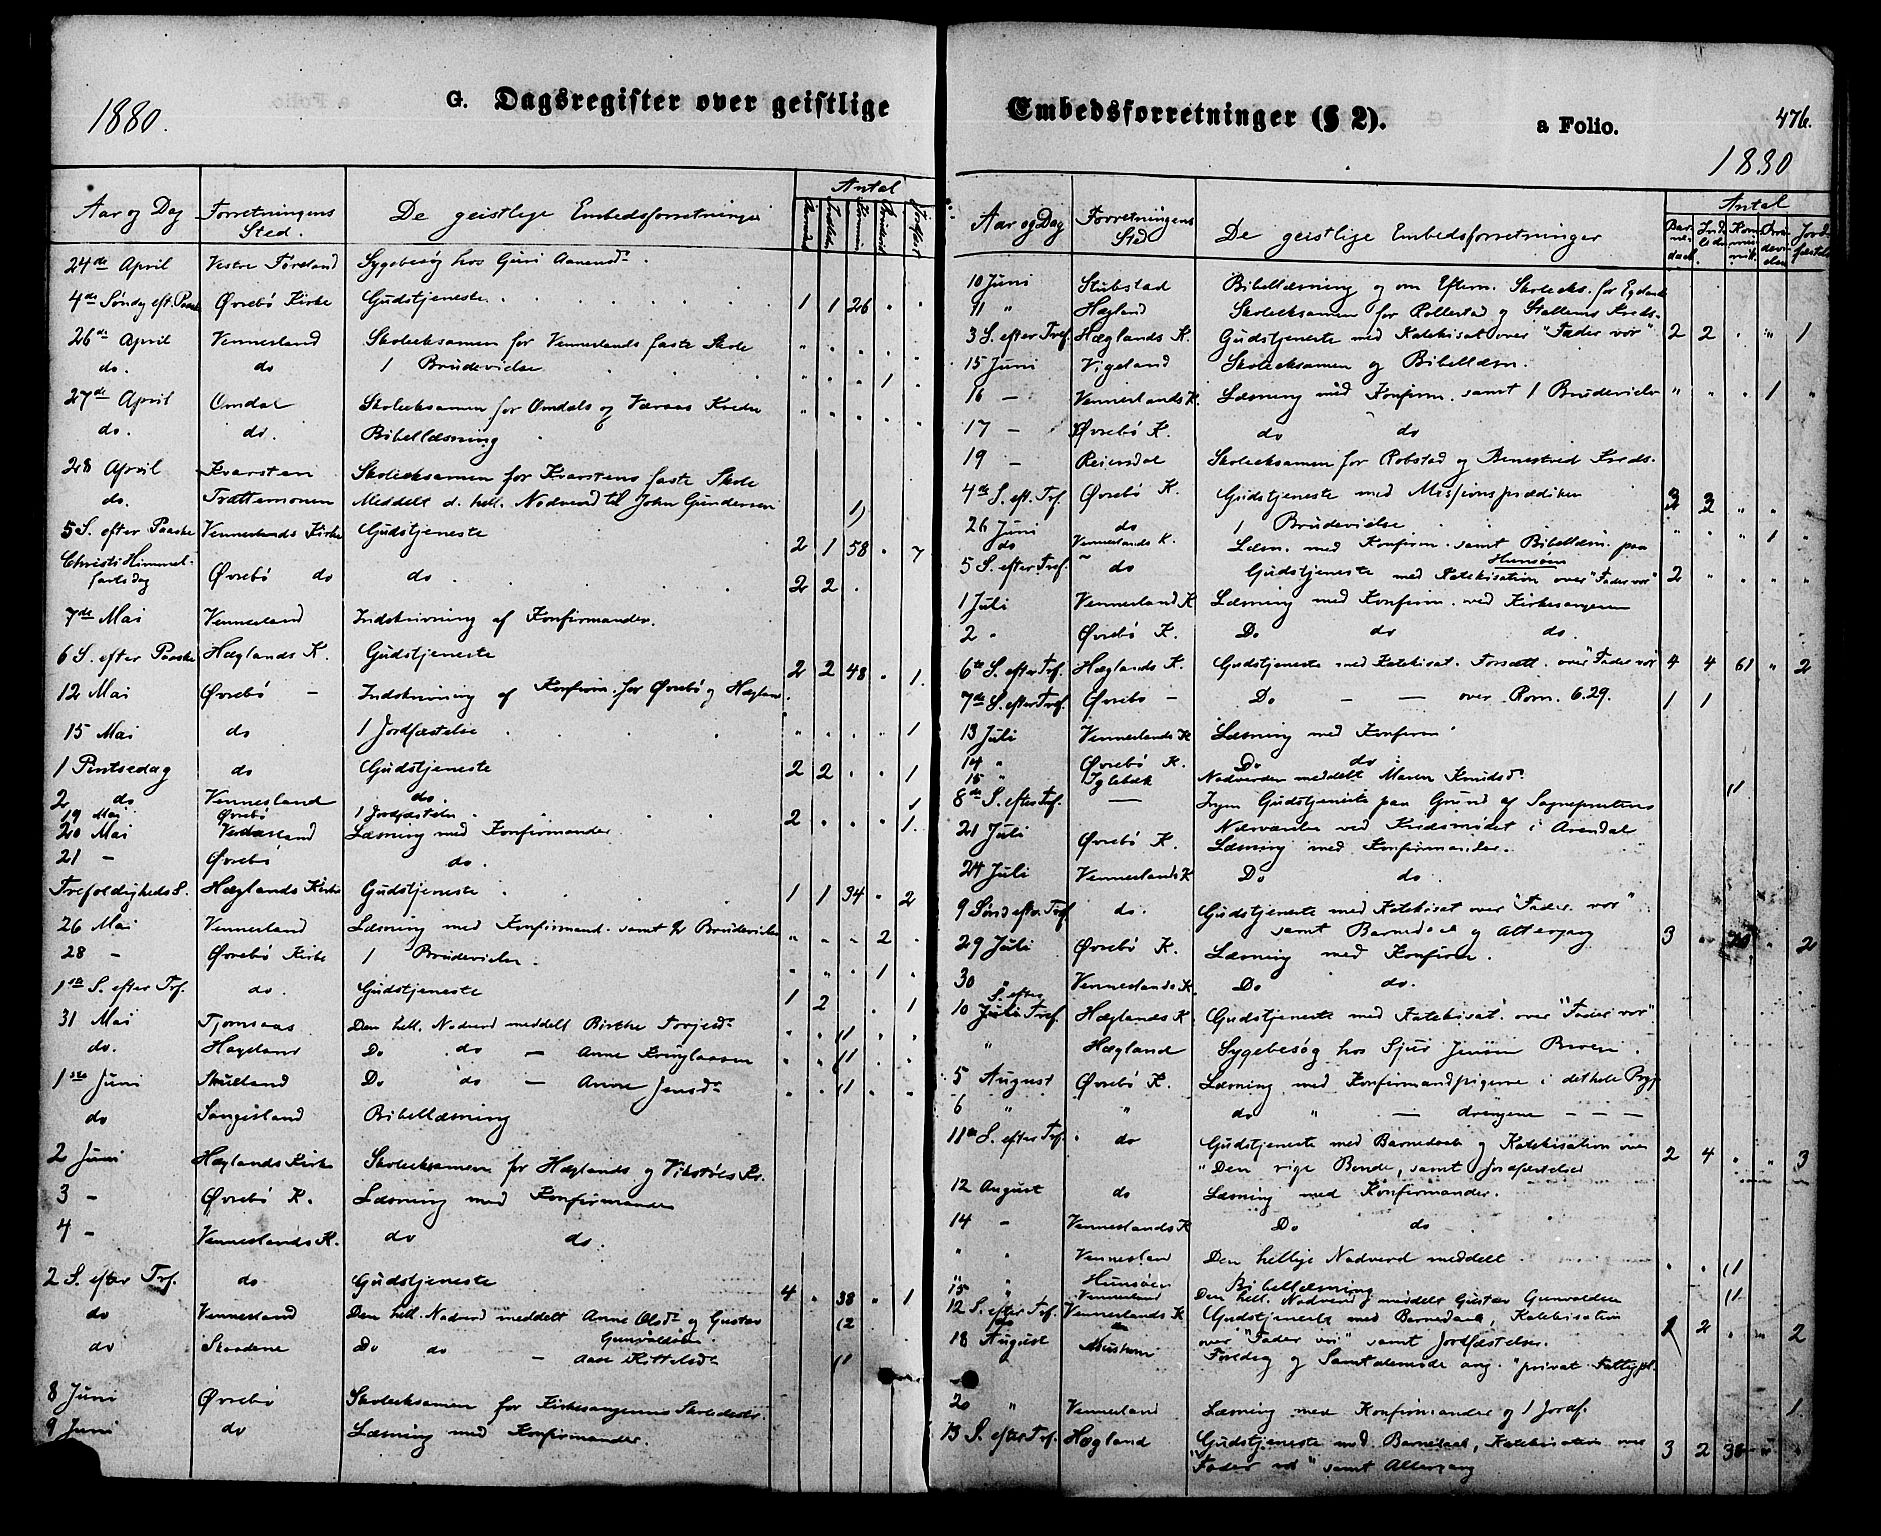 1880.
G. Dagsregister over geistlige
Aar og Dag Forretningens Sted. De geistlige Embedsforretninger Antal
24de April Vestre Sygebesøg hos Guri Aanensd.
4de Søndg eft. Paaske Øvrebø Kirke Gudstjeneste 1 1 26 " "
26de April Vennesland Skoleeksamen for Venneslands faste Skole " " " " "
do. do 1 Brudevielse " " " 1 "
27de April Omdal Skoleeksamen for Omdals og Kredse " " " " "
do. do. Bibellæsning
28 April Kvarsten Skoleeksamen for Kvarstens faste Skole
do. Meddelt d. hell. Nadverd til John Gundersen 1)
5 S. efter Paaske Venneslands Kirke Gudstjeneste 2 1 58 " 7
Christi Himmelfartsdag Øvrebø do do 2 2 "
7de Mai Vennesland Indskrivning af Konfirmander.
6 S. efter Paaske Hæglands K. Gudstjeneste 2 2 48 " 1.
12 Mai Øvrebø — Indskrivning af Konfirm. for Øvrebø og Hægland
15 Mai do 1 Jordfæstelse " " " " 1
1 Pintsedag do Gudstjeneste 2 2 " " 1
2 do Vennesland do. 1
19 Mai Øvrebø 1 Jordfæstelse 2 " " " 1.
20 Mai Vennesland Læsning med Konfirmander
21 - Øvrebø do.
Trefoldigheds S. Hæglands Kirke Gudstjeneste 1 1 34 " 2
26 Mai Vennesland Læsning med Konfirmand. samt 2 Brudevielser " " " 2 "
28 - Øvrebø Kirke 1 Brudevielse. " " " 1 "
1ste S. efter Trf. do. Gudstjeneste 1 2 " 1
31 Mai Tjomsaas Den hell. Nadverd meddelt Birthe Torjesd. " " 1) " "
do. Hageland Do do — Anne " " 1) "
1ste Juni Do do — Anne Jensd. " " 1) " "
do Sangesland Bibellæsning
2 Juni Hæglands Kirke Skoleeksamen for Hæglands og Vikstøls Kr.
3 - Øvrebø K. Læsning med Konfirmander
4 - Venneslands K. do do.
2 S. efter Trf. do Gudstjeneste 4 " 38 " 1
do Vennesland Den hell. Nadverd meddelt Anne Olsd. og Gustav Gunvaldsen. (2
do Do do — Aase Kittelsd. 1)
8 Juni Øvrebø Skoleeksamen for Kirkesangerens Skoledistr.
9 Juni do Læsning med Konfirmander.
Embedsforretninger (§ 2).
a Folio.
476.
1880
Aar og Dag Forretningens Sted De geistlige Embedsforretninger Antal
10 Juni Stubstad Bibellæsning og om Eftern. Skoleeks. for
11 " Hægland Skoleeksamen for Rollestad og Stallems Kreds.
3 S. efter Tref. Hæglands K. Gudstjeneste med Katekisat over "Fader vor" 2 2 " " 1
15 Juni Vigeland Skoleeksamen og Bibellæsn.
16 - Venneslands K. Læsning med Konfirm. samt 1 Brudevielse " " " 1 "
17 - Øvrebø K. do do
19 - Reiersdal Skoleeksamen for Robstad og Kreds.
4de S. eft. Trf. Øvrebø K. Gudstjeneste med Missionsprædiken 2 2 " " "
26 Juni do 1 Brudevielse " " " 1 "
do Venneslands K. Læsn. med Konfirm. samt Bibellæsn. paa Hunsøen
5 S. efter Tref. do Gudstjeneste med Katekisation over "Fader vor" 2 " " " "
1 Juli Vennesland K Læsning med Konfirm. ved Kirkesangeren
2 " Øvrebø K. Do do do.
6te S. efter Tref. Hæglands K. Gudstjeneste med Katekisat. Forsætt. over "Fader vor" 4 4 61 " 2
7de S. efter Tref. Øvrebø - Do — — over Rom. 6.29. 1 1
13 Juli Venneslands K Læsning med Konfirm
14 " Øvrebø K. Do do.
15 " Iglebæk Nadverden meddelt Maren Knudsd. 1)
8de S. efter Tref. — Ingen Gudstjeneste paa Grund af Sognepræstens Nærværelse ved Kredsmødet i Arendal
21 Juli Øvrebø K. Læsning med Konfirmander.
24 Juli Venneslands K Do do.
9 Sønd efter Tref do. Gudstjeneste med Katekisat over "Fader vor" samt Barnedaab og Altergang 3 " 20 " 2
29 Juli Øvrebø K. Læsning med Konfirm.
30 " Venneslands K. Do do.
10 S. efter Tref. Hæglands K. Gudstjeneste med Katekisat. over "Fader vor"
" Hægland Sygebesøg hos Sjur Jensen
5 August Øvrebø K. Læsning med Konfirmandpigerne i det hele Præg
6 " " do " — drengene — — —
11te S. efter Tref. do Gudstjeneste med Barnedaab og Katekisation over "Den rige Bonde", samt Jordfæstelse 2 4 " " 3
12 August do Læsning med Konfirmander.
14 - Venneslands K Do do
" " Vennesland Den hellige Nadverd meddelt " " 1)
" " Hunsøen Bibellæsning
15 " Vennesland Den hell. Nadverd meddelt Gustav Gunvaldsen 1)
12 S. efter Tref. Venneslands K Gudstjeneste med Barnedaab, Katekisation over "Fader vor" samt Jordfæstelser. 2 2 " " 2
18 August Foredrag og Samtalemøde ang. "privat Fattigpl.
20 " Vennesland Læsning med Konfirmander og 1 Jordf. 1.
13 S. efter Trf. Hægland Gudstjeneste med Barnedaab, Katekisation over "Fader vor" samt Altergang 3 2 38 " "